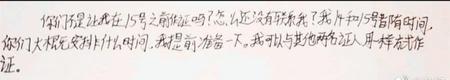 你们不是让我在15号之前作证吗？怎么还没有联系我？我14和15号都有时间，
你们大概安排什么时间，我提前准备一下。我可以与其他两名证人用一样方式作
证。